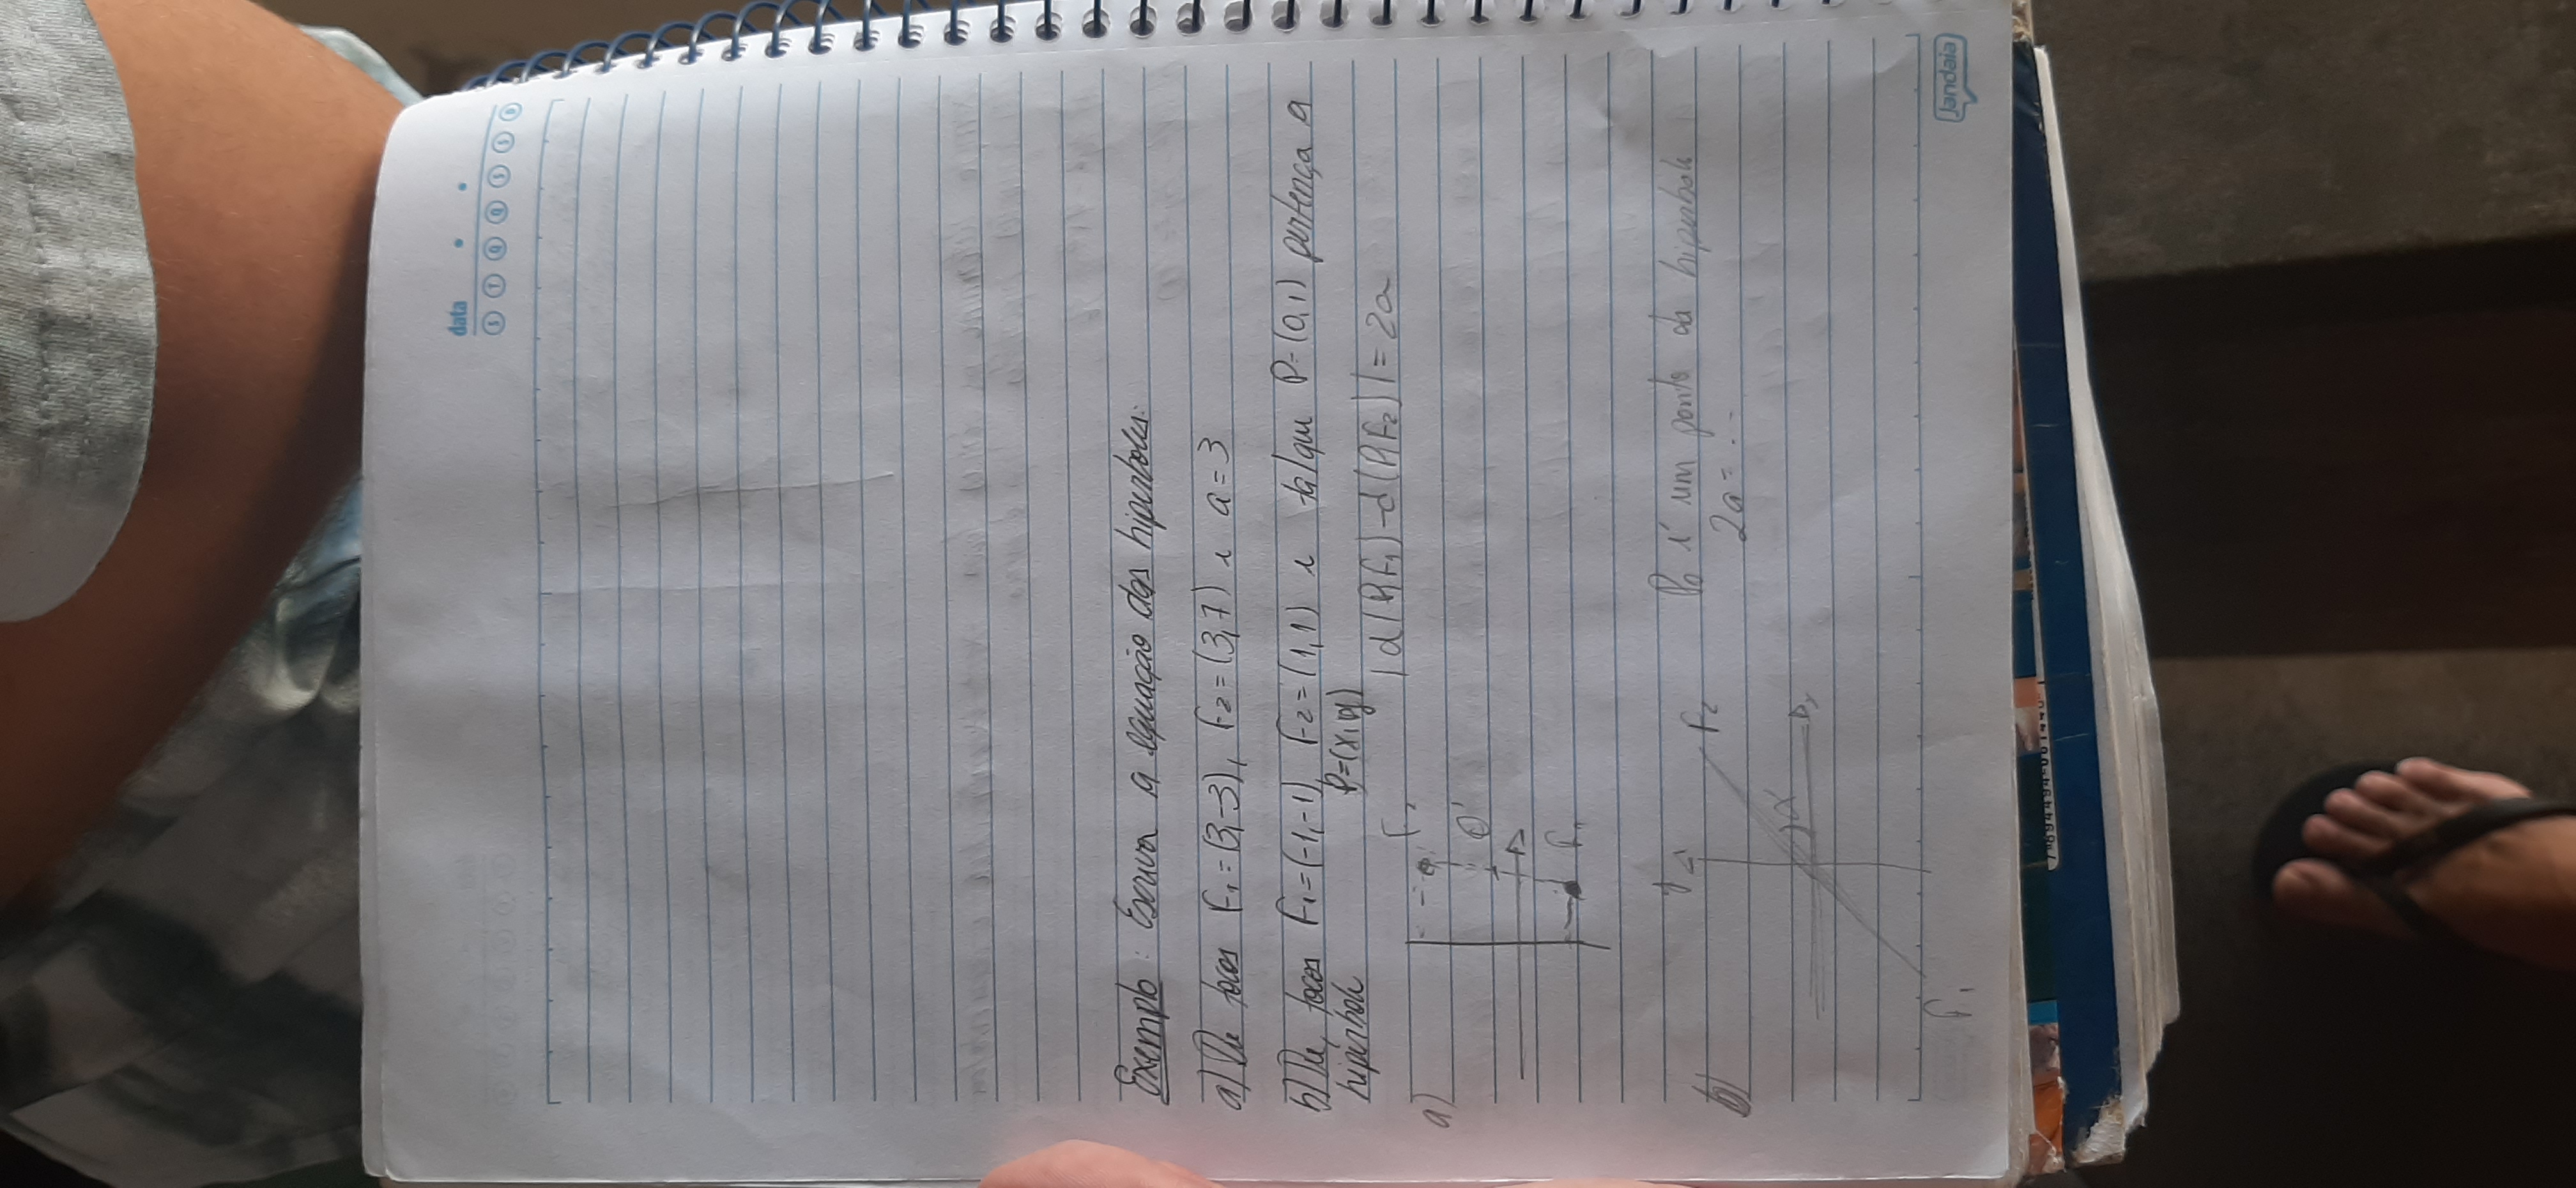 data
S T Q Q S S D
Exemplo: Escreva a equação das hipérboles:
a) De focos F₁ = (3,-3), F₂ = (3,7) e a = 3
b) De, focos F₁ = (-1,-1), F₂ = (1,1) e tal que P = (0,1) pertença a
hipérbole P = (x,y)
|d(P,F₁) - d(P,F₂)| = 2a
a)
F₂
O'
F₁
b)
y
F₂
P₀ é um ponto da hipérbole
2a = ...
α
x
F₁
jandaia